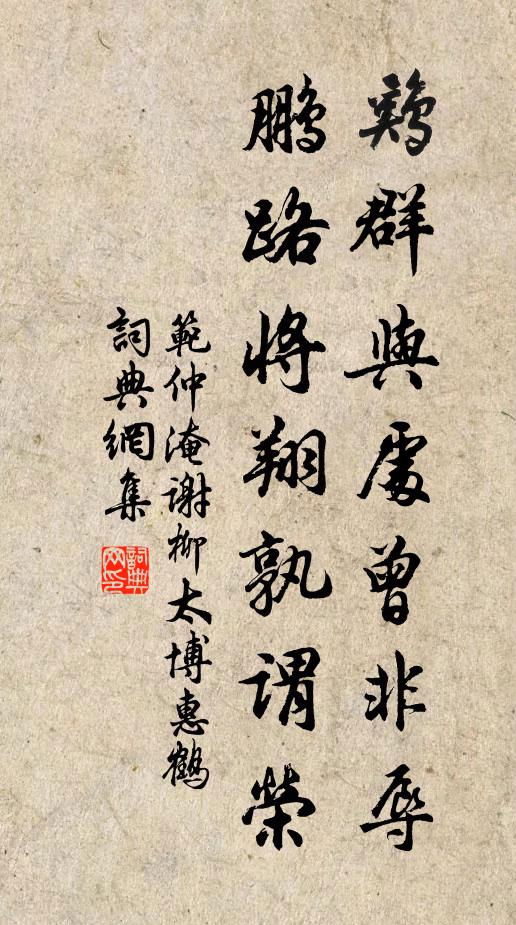 鷄群與處曾非辱
鵬路將翔孰謂榮
範仲淹謝柳太博惠鶴
詞典網集
詞典
网印